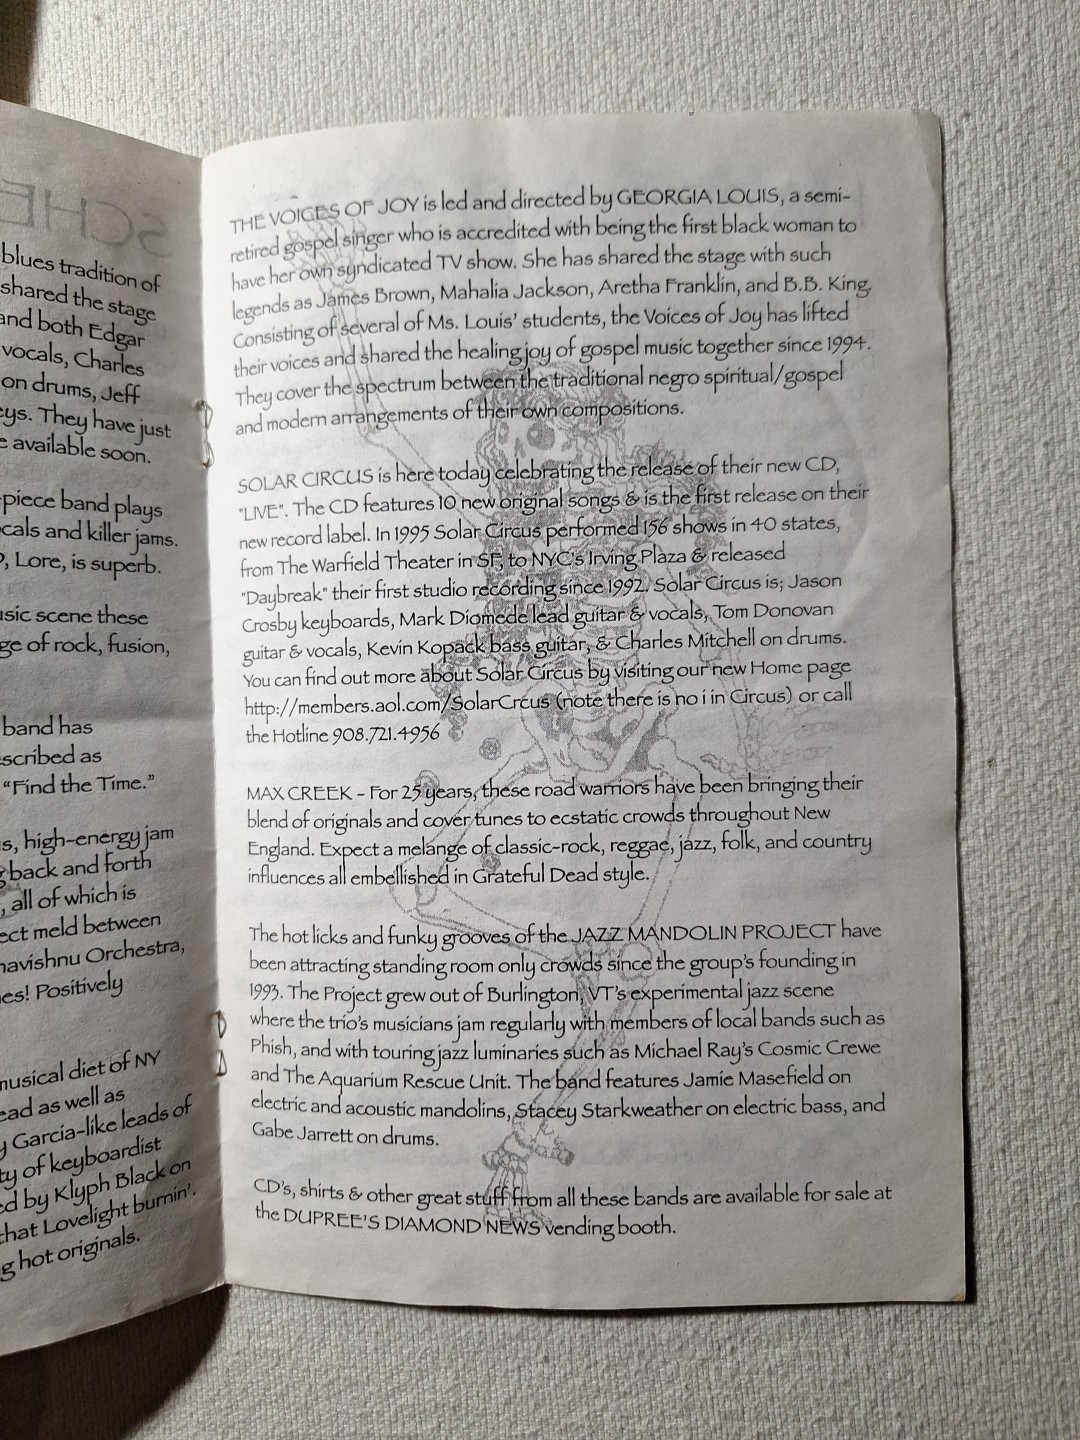 SCHE
blues tradition of
shared the stage
and both Edgar
vocals, Charles
on drums, Jeff
eys. They have just
e available soon.
piece band plays
cals and killer jams.
, Lore, is superb.
usic scene these
ge of rock, fusion,
band has
scribed as
"Find the Time."
s, high-energy jam
g back and forth
, all of which is
ect meld between
navishnu Orchestra,
es! Positively
musical diet of NY
ead as well as
y Garcia-like leads of
ty of keyboardist
ed by Klyph Black on
that Lovelight burnin'.
g hot originals.
THE VOICES OF JOY is led and directed by GEORGIA LOUIS, a semi-
retired gospel singer who is accredited with being the first black woman to
have her own syndicated TV show. She has shared the stage with such
legends as James Brown, Mahalia Jackson, Aretha Franklin, and B.B. King.
Consisting of several of Ms. Louis' students, the Voices of Joy has lifted
their voices and shared the healing joy of gospel music together since 1994.
They cover the spectrum between the traditional negro spiritual/gospel
and modern arrangements of their own compositions.
SOLAR CIRCUS is here today celebrating the release of their new CD,
"LIVE". The CD features 10 new original songs & is the first release on their
new record label. In 1995 Solar Circus performed 156 shows in 40 states,
from The Warfield Theater in SF, to NYC's Irving Plaza & released
"Daybreak" their first studio recording since 1992. Solar Circus is; Jason
Crosby keyboards, Mark Diomede lead guitar & vocals, Tom Donovan
guitar & vocals, Kevin Kopack bass guitar, & Charles Mitchell on drums.
You can find out more about Solar Circus by visiting our new Home page
http://members.aol.com/SolarCrcus (note there is no i in Circus) or call
the Hotline 908.721.4956
MAX CREEK - For 25 years, these road warriors have been bringing their
blend of originals and cover tunes to ecstatic crowds throughout New
England. Expect a melange of classic-rock, reggae, jazz, folk, and country
influences all embellished in Grateful Dead style.
The hot licks and funky grooves of the JAZZ MANDOLIN PROJECT have
been attracting standing room only crowds since the group's founding in
1993. The Project grew out of Burlington, VT's experimental jazz scene
where the trio's musicians jam regularly with members of local bands such as
Phish, and with touring jazz luminaries such as Michael Ray's Cosmic Crewe
and The Aquarium Rescue Unit. The band features Jamie Masefield on
electric and acoustic mandolins, Stacey Starkweather on electric bass, and
Gabe Jarrett on drums.
CD's, shirts & other great stuff from all these bands are available for sale at
the DUPREE'S DIAMOND NEWS vending booth.